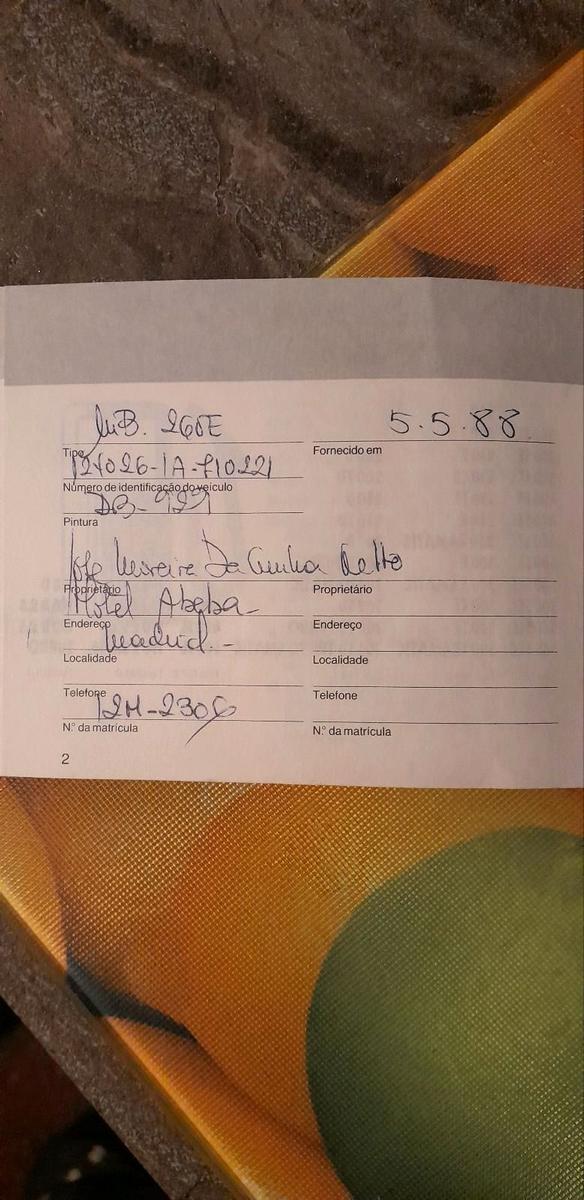 MB. 260E 5.5.88
Tipo Fornecido em
124026-1A-710221
Número de identificação do veículo
DB-929
Pintura
Moreira Da Cunha
Proprietário Proprietário
Hotel Abeba-
Endereço Endereço
Madrid.-
Localidade Localidade
Telefone Telefone
12M-2306
N.º da matrícula N.º da matrícula
2